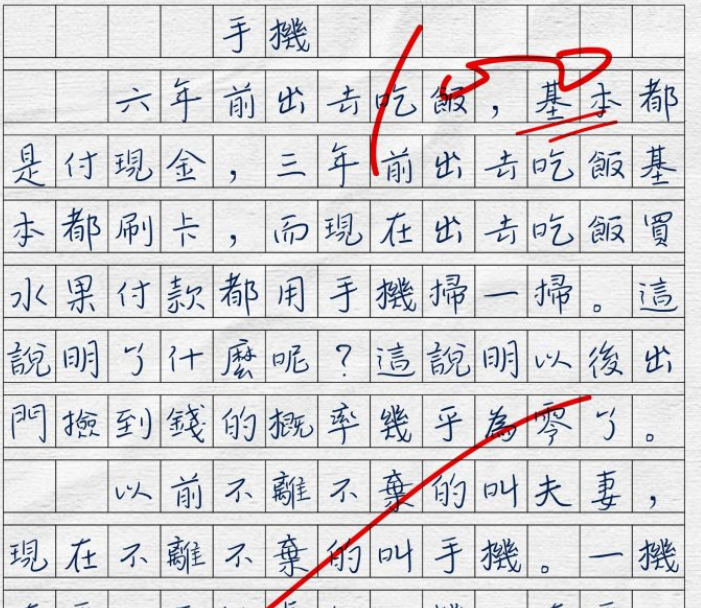 手機
六年前出去吃飯，基本都
是付現金，三年前出去吃飯基
本都刷卡，而現在出去吃飯買
水果付款都用手機掃一掃。這
說明了什麼呢？這說明以後出
門撿到錢的概率幾乎為零了。
以前不離不棄的叫夫妻，
現在不離不棄的叫手機。一機